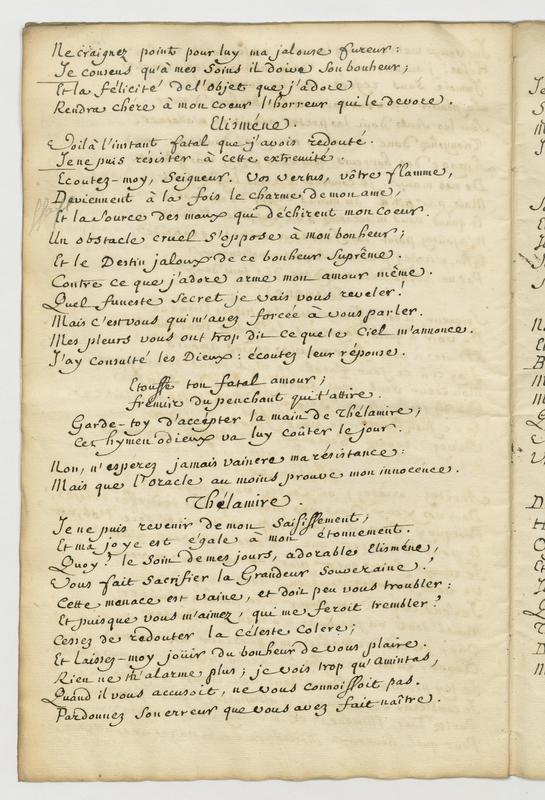 Ne craignez point pour luy ma jalouse fureur:
Je consens qu'à mes Soins il doive Son bonheur;
Et la félicité de l'objet que j'adore
Rendra chére à mon coeur l'horreur qui le dévore.
Elisméne.
Voilà l'instant fatal que j'avois redouté.
Je ne puis résister à cette extremité.
Ecoutez-moy, Seigneur. Vos vertus, vôtre flamme,
Deviennent à la fois le charme de mon ame,
Et la Source des maux qui déchirent mon coeur.
Un obstacle cruel S'oppose à mon bonheur;
Et le Destin jaloux de ce bonheur Suprême.
Contre ce que j'adore arme mon amour même.
Quel funeste Secret je vais vous reveler!
Mais c'est vous qui m'avez forcée à vous parler.
Mes pleurs vous ont trop dit ce que le Ciel m'annonce.
J'ay consulté les Dieux: écoutez leur réponse.
Etouffe ton fatal amour;
Frémir du penchant qui t'attire.
Garde-toy d'accepter la main de Thélamire;
Cet hymen odieux va luy coûter le jour.
Non, n'esperez jamais vaincre ma résistance:
Mais que l'oracle au moins prouve mon innocence.
Thélamire.
Je ne puis revenir de mon Saisissement;
Et ma joye est égale à mon étonnement.
Quoy! le Soin de mes jours, adorable Elisméne,
Vous fait Sacrifier la Grandeur Souveraine!
Cette menace est vaine, et doit peu vous troubler:
Et puisque vous m'aimez, qui me feroit trembler?
Cessez de redouter la céleste Colere;
Et laissez-moy joüir du bonheur de vous plaire.
Rien ne m'alarme plus; je vois trop qu'Amintas,
Quand il vous accusoit, ne vous connoissoit pas.
Pardonnez Son erreur que vous avez fait naître.